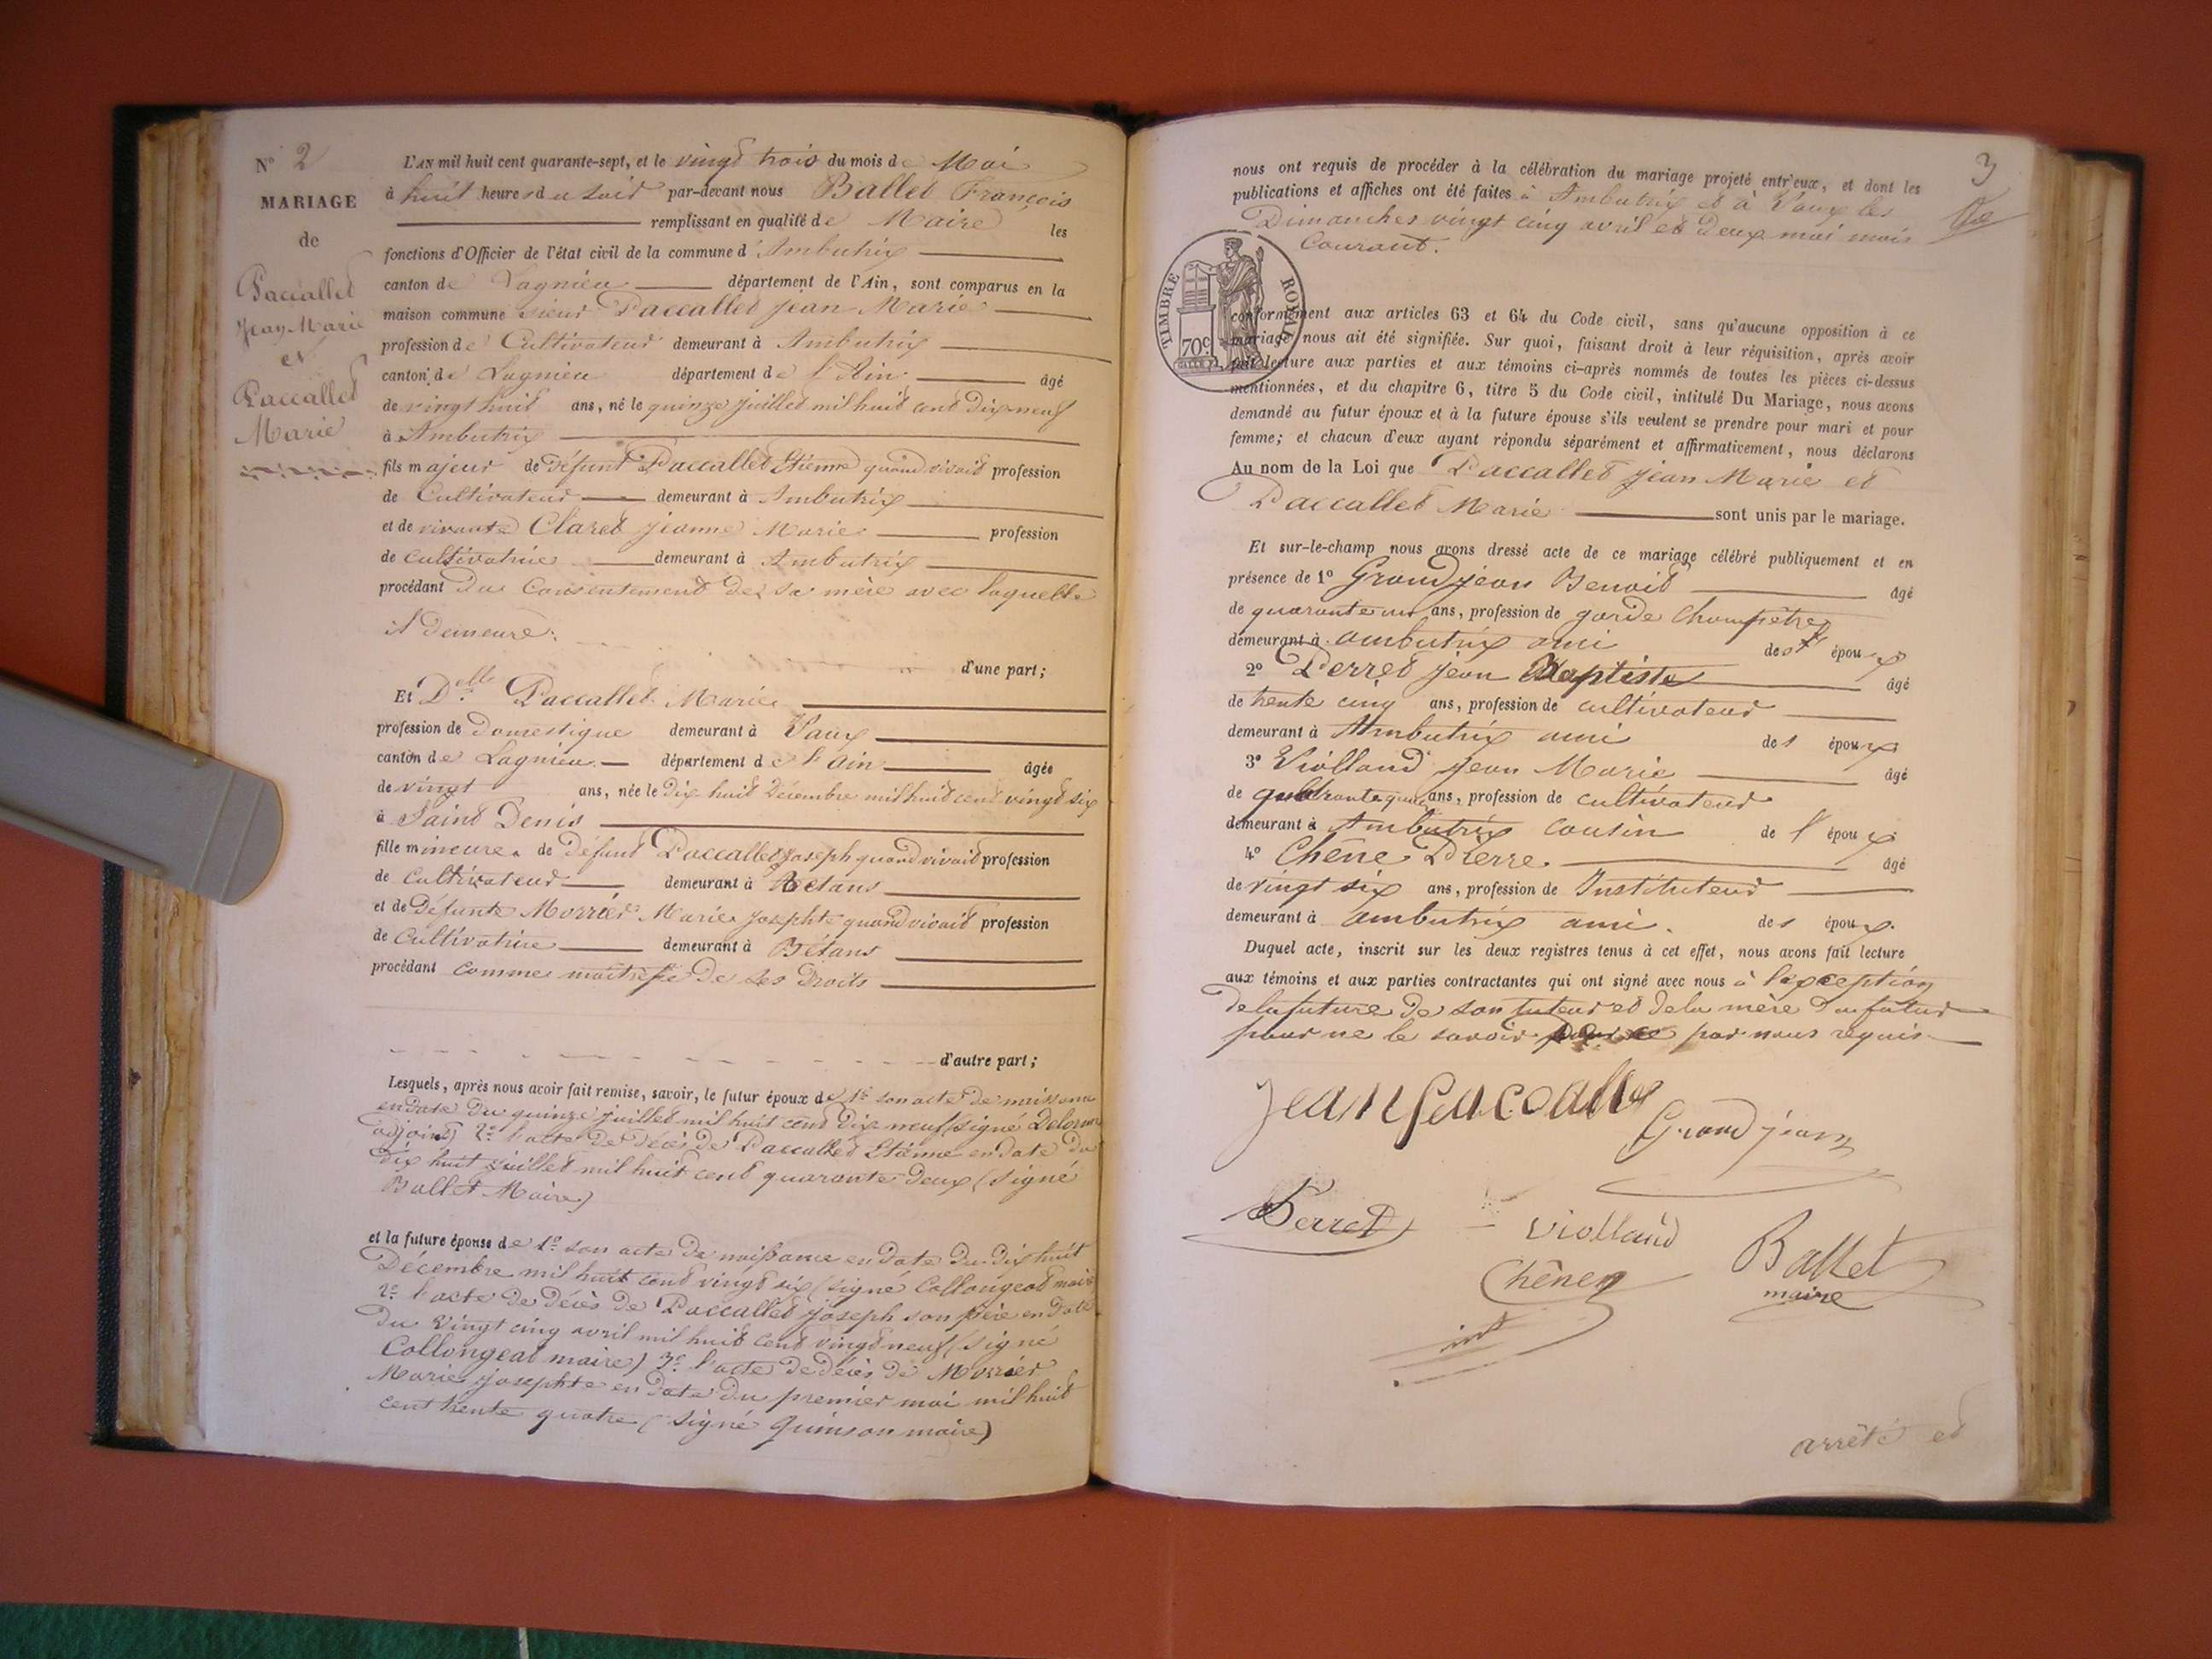 N° 2
MARIAGE
de
Paccallet
Jean Marie
et
Paccallet
Marie
L'AN mil huit cent quarante-sept, et le vingt trois du mois de Mai
à huit heures du soir par-devant nous Ballet François
remplissant en qualité de Maire les
fonctions d'Officier de l'état civil de la commune d'Ambutrix
canton de Lagnieu département de l'Ain, sont comparus en la
maison commune sieur Paccallet Jean Marie
profession de Cultivateur demeurant à Ambutrix
canton de Lagnieu département de l'Ain âgé
de vingt huit ans, né le quinze juillet mil huit cent dix neuf
à Ambutrix
fils majeur de défunt Paccallet Etienne quand vivait profession
de Cultivateur demeurant à Ambutrix
et de vivante Claret Jeanne Marie profession
de cultivatrice demeurant à Ambutrix
procédant du consentement de sa mère avec laquelle
il demeure.
d'une part;
Et Delle Paccallet Marie
profession de Domestique demeurant à Vaux
canton de Lagnieu département de l'Ain âgée
de vingt ans, née le dix huit Décembre mil huit cent vingt six
à Saint Denis
fille mineure de défunt Paccallet Joseph quand vivait profession
de cultivateur demeurant à Bétans
et de défunte Morrier Marie Josephte quand vivait profession
de Cultivatrice demeurant à Bétans
procédant comme maitresse de ses droits
d'autre part;
Lesquels, après nous avoir fait remise, savoir, le futur époux de 1° son acte de naissance
en date du quinze juillet mil huit cent dix neuf (signé Delorme
adjoint) 2° l'acte de décès de Paccallet Etienne en date du
dix huit juillet mil huit cent quarante deux (signé
Ballet Maire)
et la future épouse de 1° son acte de naissance en date du dix huit
Décembre mil huit cent vingt six (signé Collongeat maire
2° l'acte de décès de Paccallet Joseph son père en date
du vingt cinq avril mil huit cent vingt neuf (signé
Collongeat maire) 3° l'acte de décès de Morrier
Marie Josephte en date du premier mai mil huit
cent trente quatre (signé Quinson maire)
3
nous ont requis de procéder à la célébration du mariage projeté entr'eux, et dont les
publications et affiches ont été faites à Ambutrix et à Vaux les
Dimanches vingt cinq avril et deux mai mois
Courant.
TIMBRE ROYAL
70c
conformément aux articles 63 et 64 du Code civil, sans qu'aucune opposition à ce
mariage nous ait été signifiée. Sur quoi, faisant droit à leur réquisition, après avoir
fait lecture aux parties et aux témoins ci-après nommés de toutes les pièces ci-dessus
mentionnées, et du chapitre 6, titre 5 du Code civil, intitulé Du Mariage, nous avons
demandé au futur époux et à la future épouse s'ils veulent se prendre pour mari et pour
femme; et chacun d'eux ayant répondu séparément et affirmativement, nous déclarons
Au nom de la Loi que Paccallet Jean Marie et
Paccallet Marie sont unis par le mariage.
Et sur-le-champ nous avons dressé acte de ce mariage célébré publiquement et en
présence de 1° Grandjean Benoit âgé
de quarante un ans, profession de garde champêtre
demeurant à ambutrix ami des époux
2° Perret Jean Baptiste âgé
de trente cinq ans, profession de cultivateur
demeurant à Ambutrix ami des époux
3° Violland Jean Marie âgé
de ans, profession de cultivateur
demeurant à Ambutrix cousin de l'époux
4° Chêne Pierre âgé
de vingt six ans, profession de Instituteur
demeurant à ambutrix ami. des époux.
Duquel acte, inscrit sur les deux registres tenus à cet effet, nous avons fait lecture
aux témoins et aux parties contractantes qui ont signé avec nous à l'exception
de la future de son tuteur et de la mère du futur
pour ne le savoir par nous requis
Jean paccallet
Grandjean
Perret
Violland
Chêne
Ballet
maire
int
arrêté et